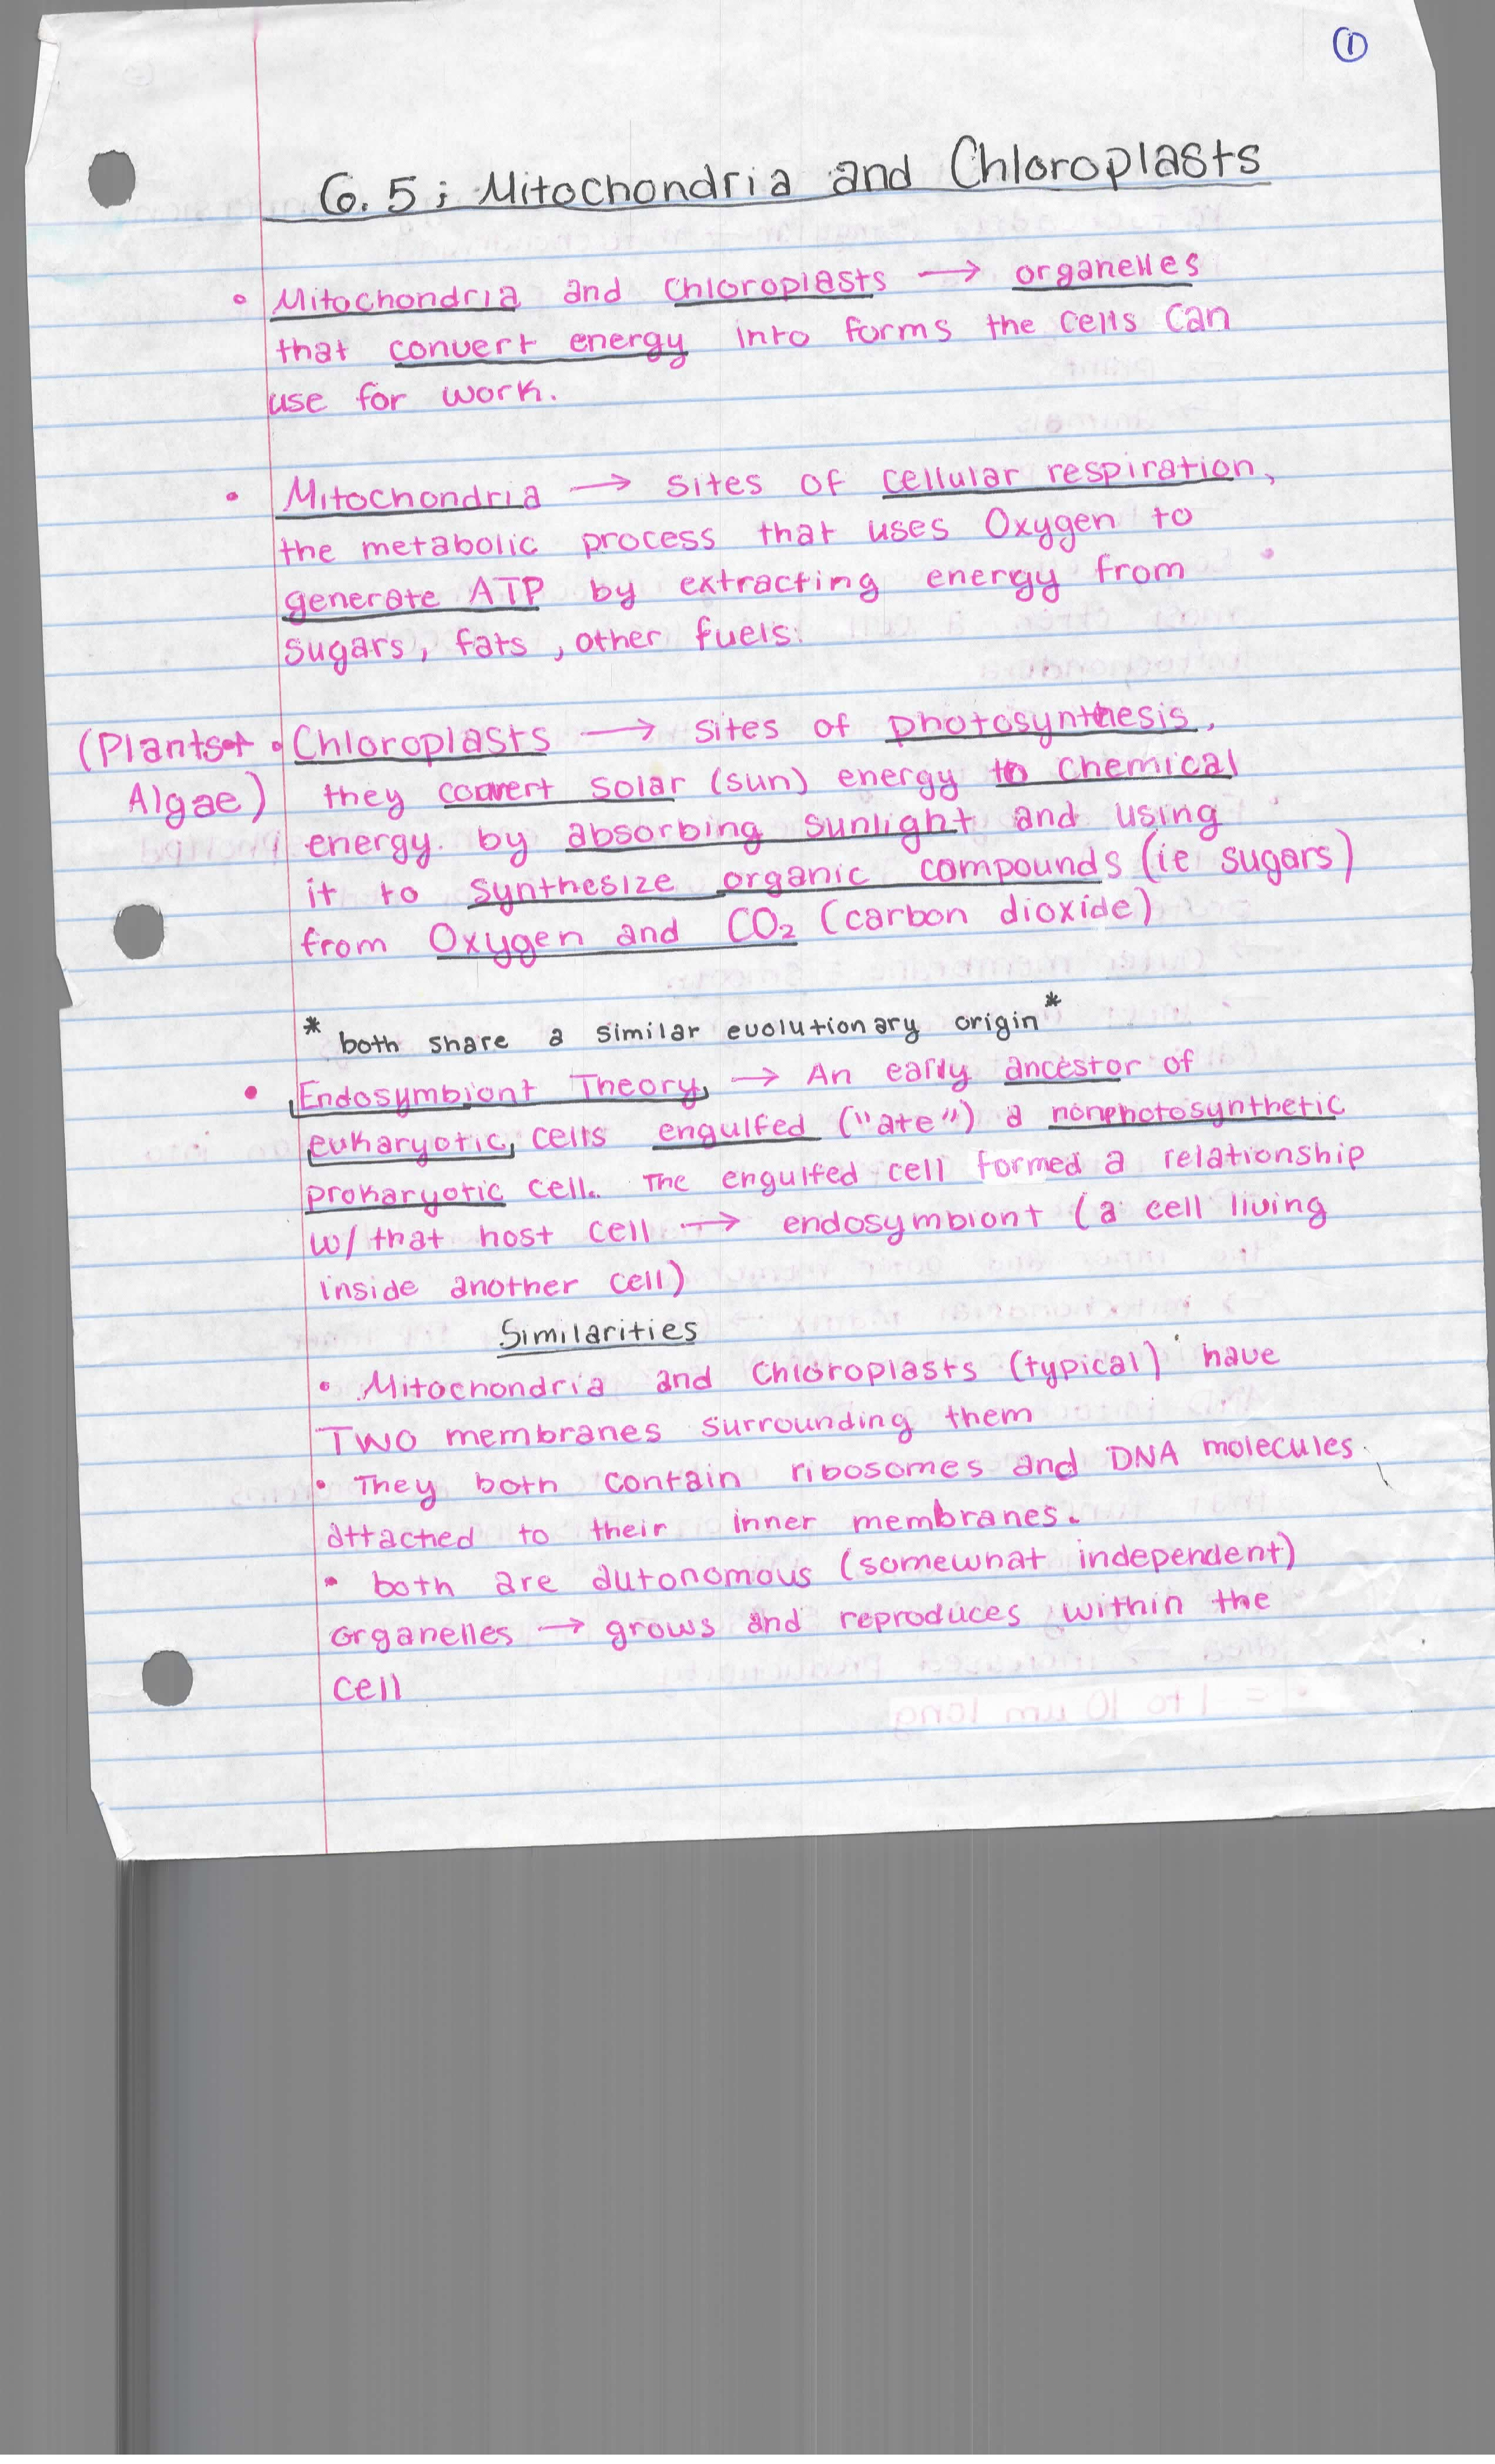 ①
6.5: Mitochondria and Chloroplasts
• Mitochondria and Chloroplasts → organelles
that convert energy into forms the cells can
use for work.
• Mitochondria → sites of cellular respiration,
the metabolic process that uses Oxygen to
generate ATP by extracting energy from
sugars, fats, other fuels.
(Plants + • Chloroplasts → sites of photosynthesis,
Algae) they convert solar (sun) energy to chemical
energy. by absorbing sunlight and using
it to synthesize organic compounds (ie sugars)
from Oxygen and CO₂ (carbon dioxide)
* both share a similar evolutionary origin *
• Endosymbiont Theory, → An early ancestor of
eukaryotic, cells engulfed ("ate") a nonphotosynthetic
prokaryotic cell. The engulfed cell formed a relationship
w/ that host cell → endosymbiont (a cell living
inside another cell)
Similarities
• Mitochondria and Chloroplasts (typical) have
Two membranes surrounding them
• They both contain ribosomes and DNA molecules.
attached to their inner membranes.
• both are autonomous (somewhat independent)
organelles → grows and reproduces within the
cell